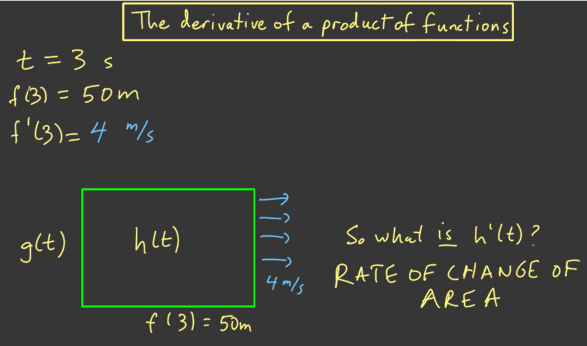 The derivative of a product of functions
t = 3 s
f(3) = 50m
f'(3) = 4 m/s
g(t)
h(t)
4 m/s
f(3) = 50m
So what is h'(t)?
RATE OF CHANGE OF
AREA